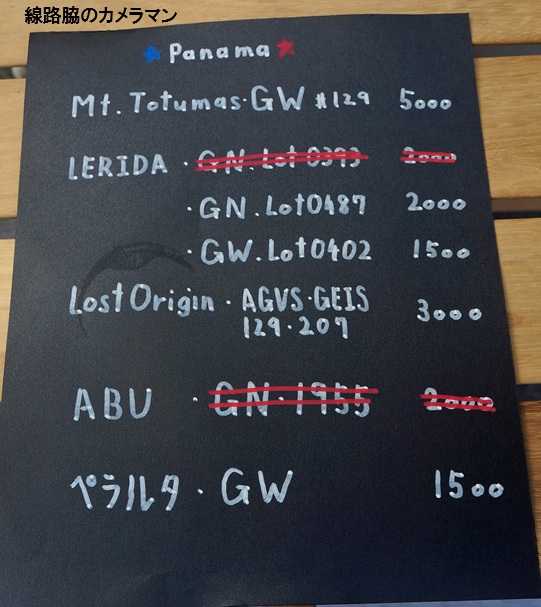 線路脇のカメラマン
★Panama★
Mt. Totumas・GW #129 5000
LERIDA ・GN.Lot 0393 2000
・GN.Lot0487 2000
・GW.Lot0402 1500
Lost Origin・AGVS・GEIS 3000
129・207
ABU ・GN・1955 2000
ペラルタ・GW 1500